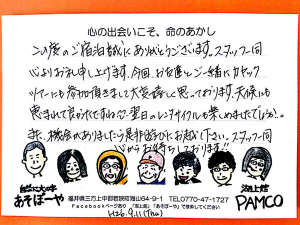 心の出会いこそ、命のあかし
この度のご宿泊誠にありがとうございます。スタッフ一同
心よりお礼申し上げます。今回、お友達とご一緒にカヤック
ツアーにも参加頂きまして大変嬉しく思っております。天候にも
恵まれて良かったですね♡翌日のレンタサイクルも楽しめましたでしょうか。
また、機会がありましたら是非遊びにお越し下さい。スタッフ一同
心からお待ちしております!!
自然に大の字
あそぼーや
福井県三方上中郡若狭町海山64-9-1 TEL0770-47-1727
Facebookページあり 「湖上館」「あそぼーや」で検索してください
H26.9.11(Thu)
湖上館
PAMCO